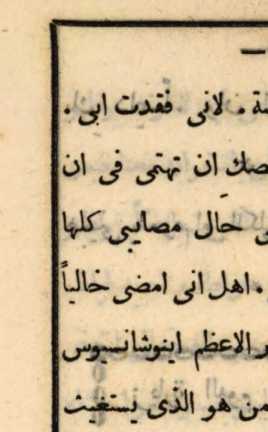 ة . لانى فقدت ابى .
صك ان تهتمى فى ان
حال مصايبى كلها
. اهل انى امضى خالياً
ر الاعظم اينوشانسيوس
من هو الذى يستغيث